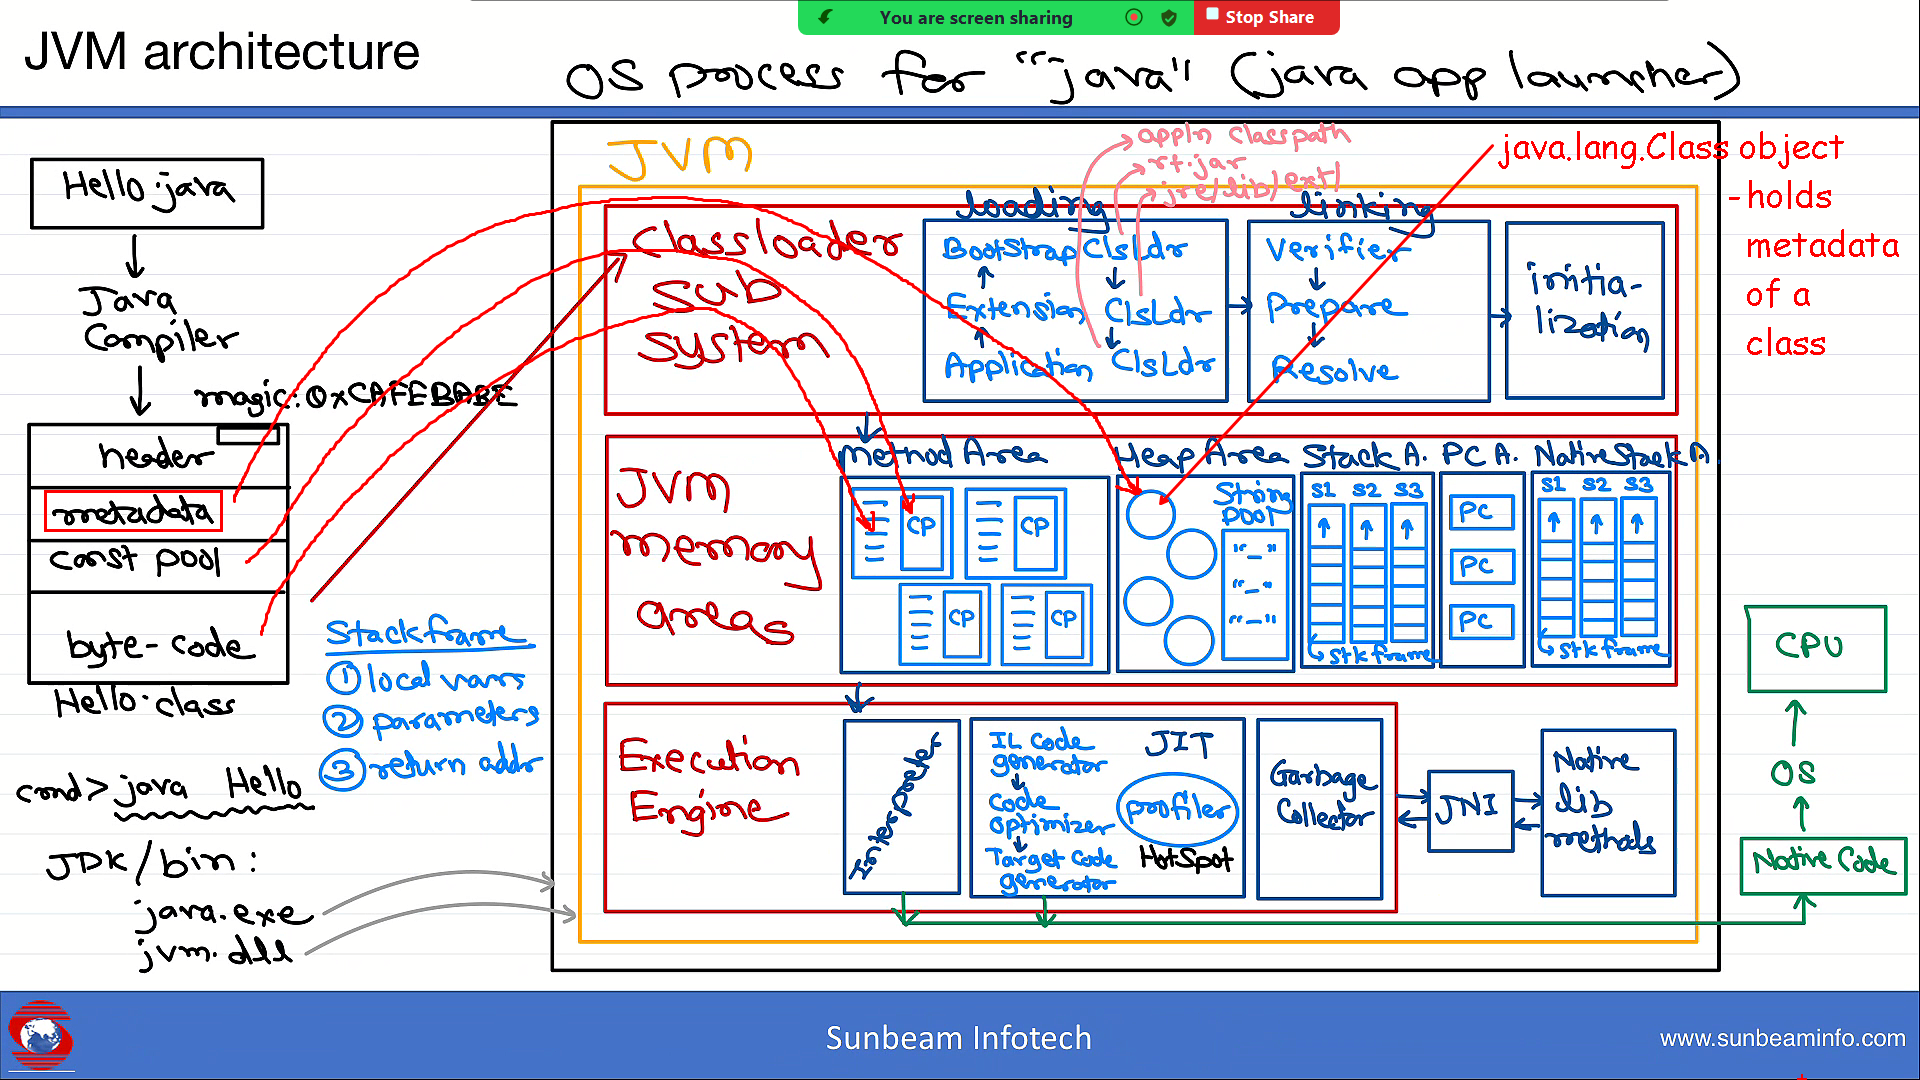 You are screen sharing
Stop Share
JVM architecture
OS process for "java" (java app launcher)
Hello.java
Java
Compiler
magic: 0xCAFEBABE
header
metadata
const pool
byte-code
Hello.class
Stackframe
① local vars
② parameters
③ return addr
cmd> java Hello
JDK/bin:
java.exe
jvm.dll
JVM
appln classpath
rt.jar
jre/lib/ext/
java.lang.Class object
- holds
metadata
of a
class
Classloader
sub
system
loading
BootStrap ClsLdr
Extension ClsLdr
Application ClsLdr
linking
Verifier
Prepare
Resolve
initia-
lization
JVM
memory
areas
Method Area
CP
CP
CP
CP
Heap Area
String
Pool
"_"
"_"
"_"
Stack A.
S1 S2 S3
stk frame
PC A.
PC
PC
PC
Native Stack A.
S1 S2 S3
stk frame
Execution
Engine
Interpreter
IL Code
generator
Code
Optimizer
Target Code
generator
JIT
profiler
HotSpot
Garbage
Collector
JNI
Native
lib
methods
CPU
OS
Native Code
Sunbeam Infotech
www.sunbeaminfo.com